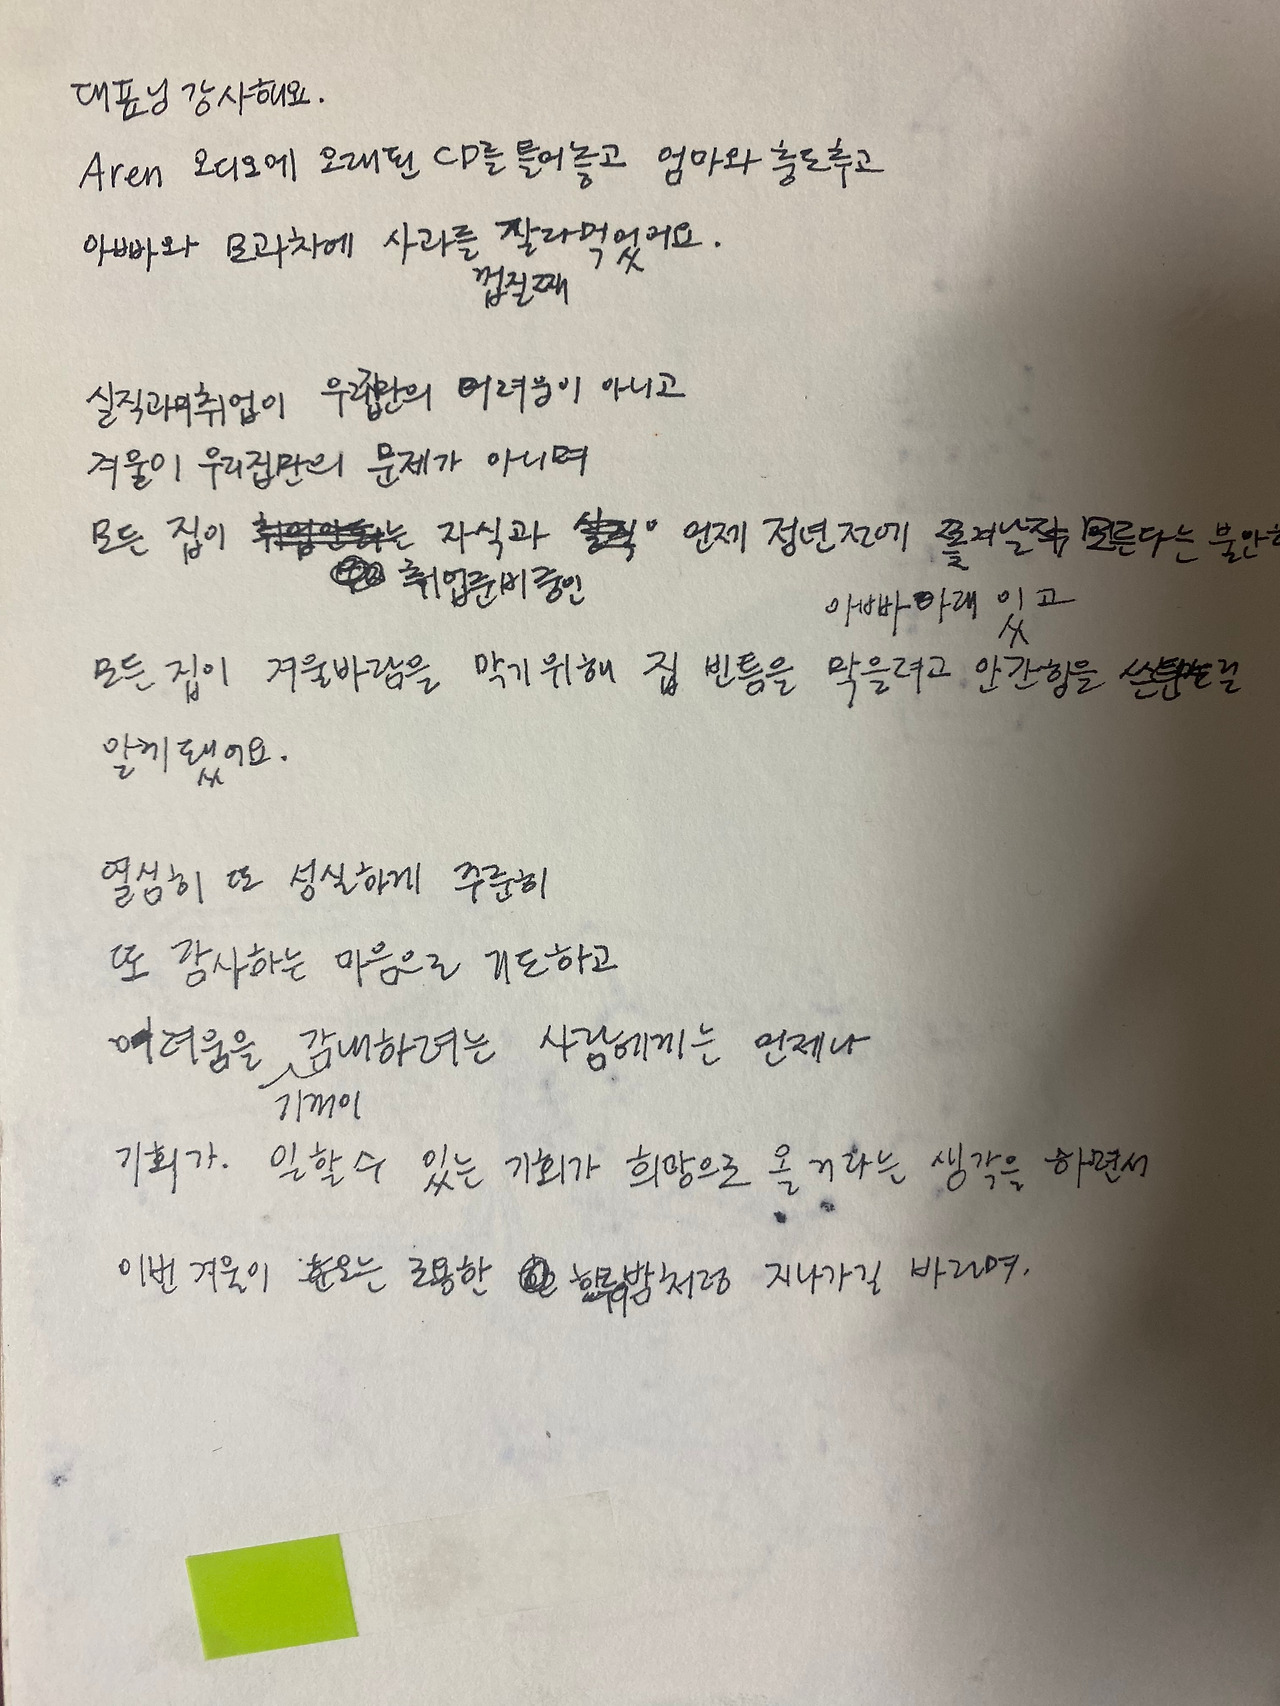 대표님 감사해요.
Aren 오디오에 오래된 CD를 틀어놓고 엄마와 춤도추고
아빠와 모과차에 사과를 잘라먹었어요.
껍질째
실직과 미취업이 우리집만의 어려움이 아니고
겨울이 우리집만의 문제가 아니며
모든 집이 는 자식과 언제 정년전에 쫓겨날지 모른다는 불안한
취업준비중인
아빠 아래 있고
모든 집이 겨울바람을 막기위해 집 빈틈을 막을려고 안간힘을 쓴다는걸
알게됐어요.
열심히 또 성실하게 꾸준히
또 감사하는 마음으로 기도하고
어려움을 감내하려는 사람에게는 언제나
기꺼이
기회가. 일할수 있는 기회가 희망으로 올거라는 생각을 하면서
이번 겨울이 눈오는 조용한 밤처럼 지나가길 바라며.